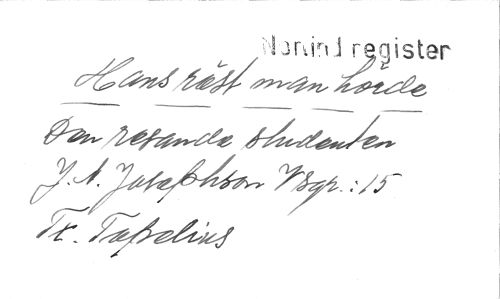 Nonind register
Hans röst man hörde
Den resande studenten
J. A. Josephson Bsqr.: 15
Tx. Topelius